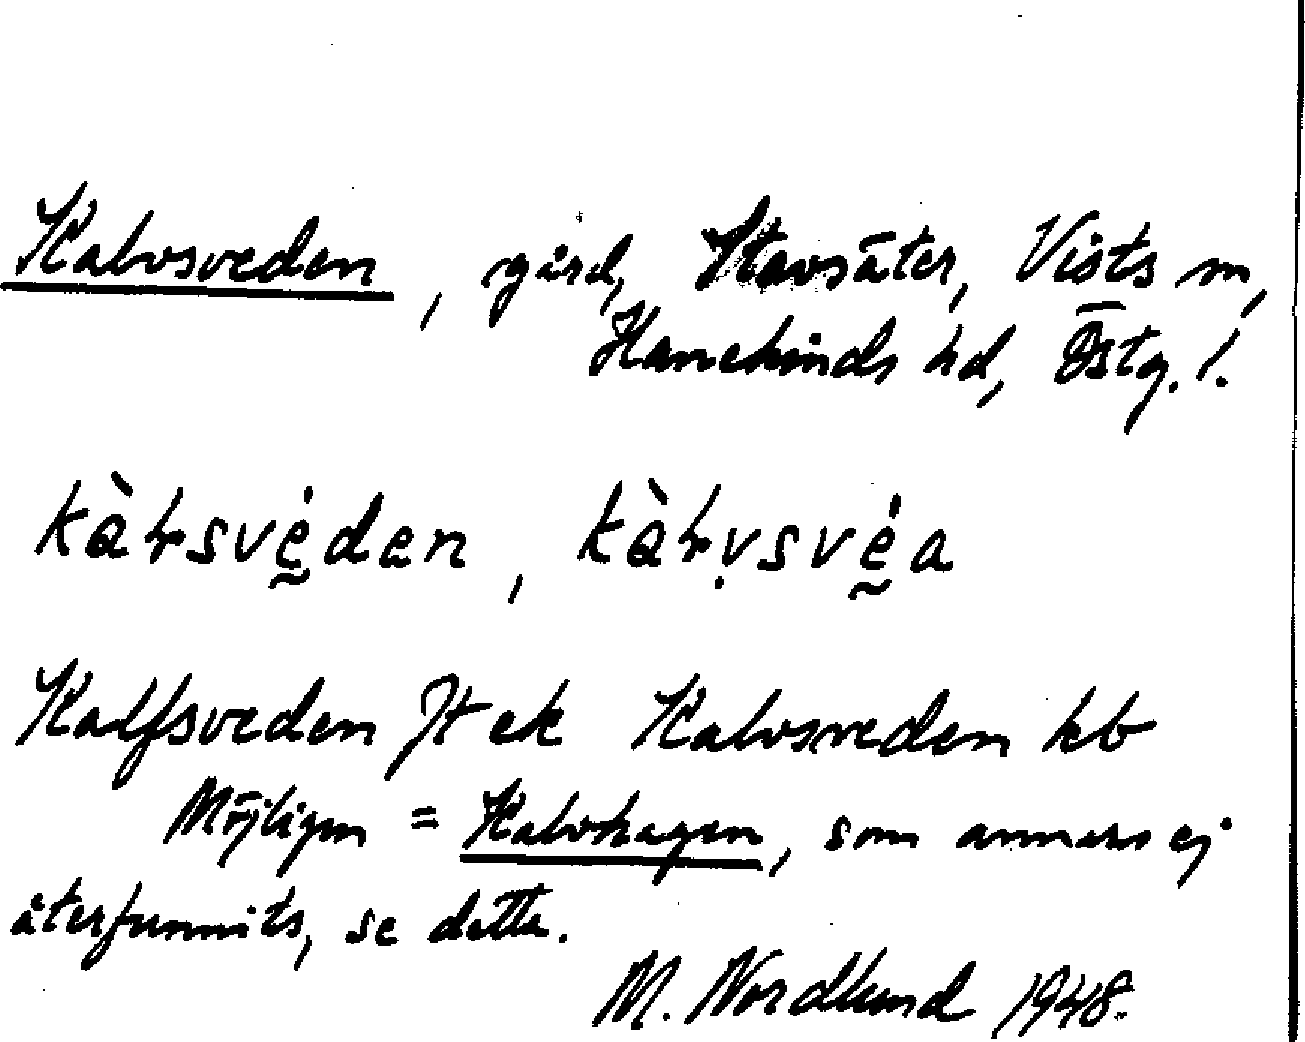 Kalvsveden, gård, Stavsäter, Vists sn,
Hanekinds hd, Östg. l.
kàɫsvḛ́den, kàɫv̥svḛ́a
Kalfsveden Jt ek Kalvsveden kb
Möjligen = Kalvhagen, som annars ej
återfunnits, se detta.
M. Nordlund 1948.